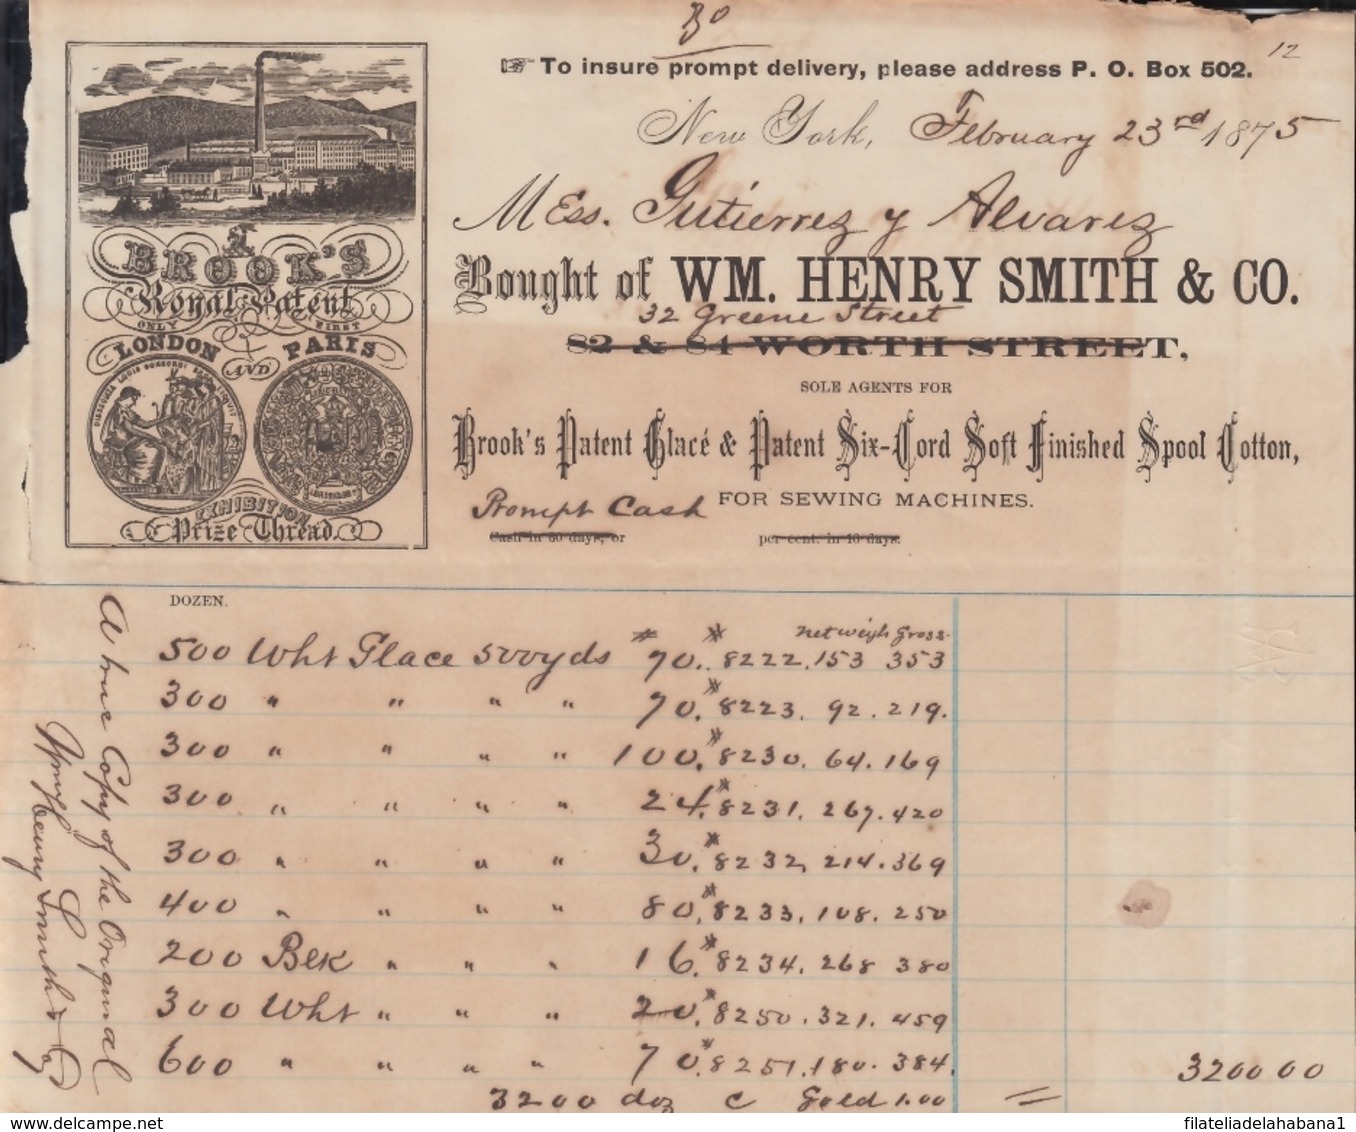 Bo
12
To insure prompt delivery, please address P. O. Box 502.
New York, February 23rd 1875
Mess. Gutierrez y Alvarez
Bought of WM. HENRY SMITH & CO.
32 Greene Street
82 & 84 WORTH STREET,
SOLE AGENTS FOR
Brook's Patent Glacé & Patent Six-Cord Soft Finished Spool Cotton,
FOR SEWING MACHINES.
Prompt Cash
Cash in 30 days, or per cent. in 10 days.
BROOK'S
Royal Patent
ONLY FIRST
LONDON AND PARIS
EXHIBITION
Prize Thread
DOZEN.
net weigh Gross
500 Wht Glace 500 yds # 70. * 8222. 153 353
300 " " " " 70. * 8223. 92. 219.
300 " " " " 100. * 8230. 64. 169
300 " " " " 24. * 8231. 267. 420
300 " " " " 30. * 8232, 214. 369
400 " " " " 80. * 8233. 108. 250
200 Blk " " " 16. * 8234. 268 380
300 Wht " " " 20. * 8250. 321. 459
600 " " " " 70. * 8251. 180. 384.
3200 00
3200 doz c Gold 1.00 =
A true Copy of the Original
Wm Henry Smith & Co
filateliadelahabana1